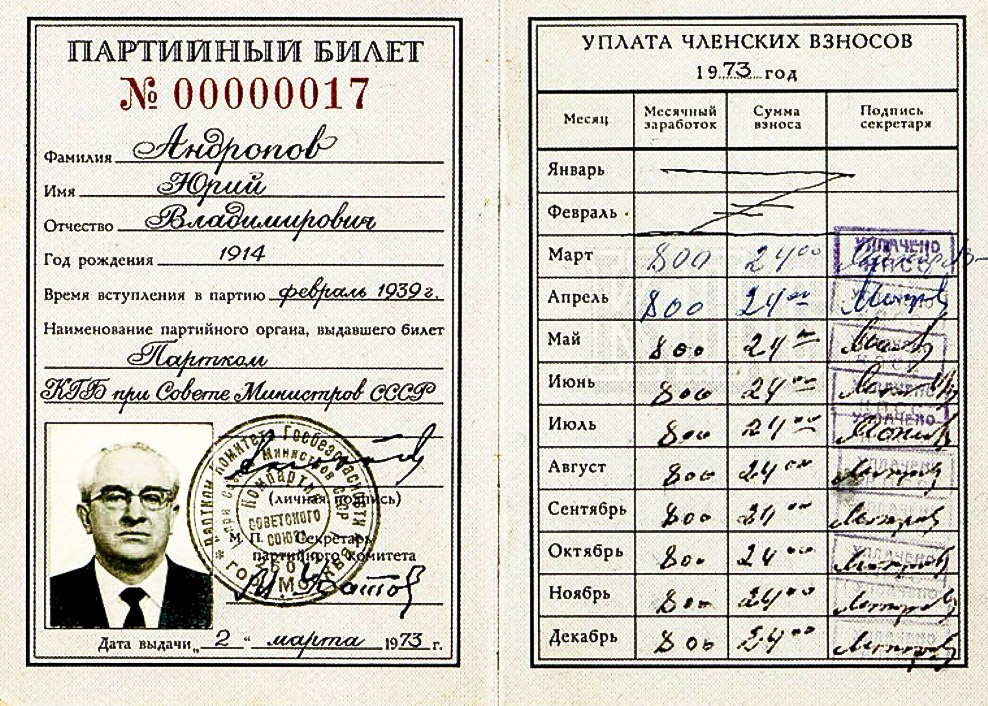 ПАРТИЙНЫЙ БИЛЕТ
№ 00000017
Фамилия Андропов
Имя Юрий
Отчество Владимирович
Год рождения 1914
Время вступления в партию февраль 1939 г.
Наименование партийного органа, выдавшего билет
Партком
КГБ при Совете Министров СССР
(личная подпись)
М. П. Секретарь
партийного комитета
Дата выдачи „ 2 “ марта 1973 г.
УПЛАТА ЧЛЕНСКИХ ВЗНОСОВ
1973 год
Месяц Месячный заработок Сумма взноса Подпись секретаря
Январь
Февраль
Март 800 24 00 УПЛАЧЕНО
Апрель 800 24 00
Май 800 24 00
Июнь 800 24 00 УПЛАЧЕНО
Июль 800 24 00 УПЛАЧЕНО
Август 800 24 00
Сентябрь 800 24 00
Октябрь 800 24 00 УПЛАЧЕНО
Ноябрь 800 24 00
Декабрь 800 24 00